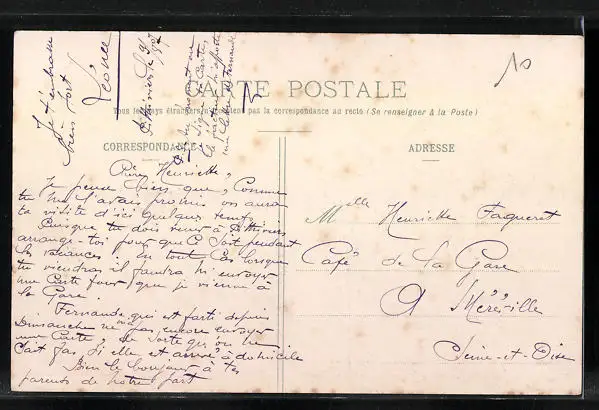 CARTE POSTALE
Tous les pays étrangers n'acceptent pas la correspondance au recto (Se renseigner à la Poste)
CORRESPONDANCE
ADRESSE
10
Henriette,
Je pense bien que, comme
tu me l'avais promis on aura
ta visite d'ici quelque temps
Puisque tu dois venir à Pithiviers
arrange-toi pour que ce soit pendant
les vacances. En tout cas lorsque
tu viendras il faudra m'envoyer
une Carte pour que je vienne à
la Gare.
Fernande qui est partie depuis
Dimanche ne pas encore envoyer
une Carte, de sorte qu'on ne
sait pas si elle est arrivé à domicile
Bien le bonjour à tes
parents de notre part
Je t'embrasse
bien fort
Léonce
Pithiviers le
Melle Henriette Faqueret
Café de la Gare
A Méréville
Seine-et-Oise